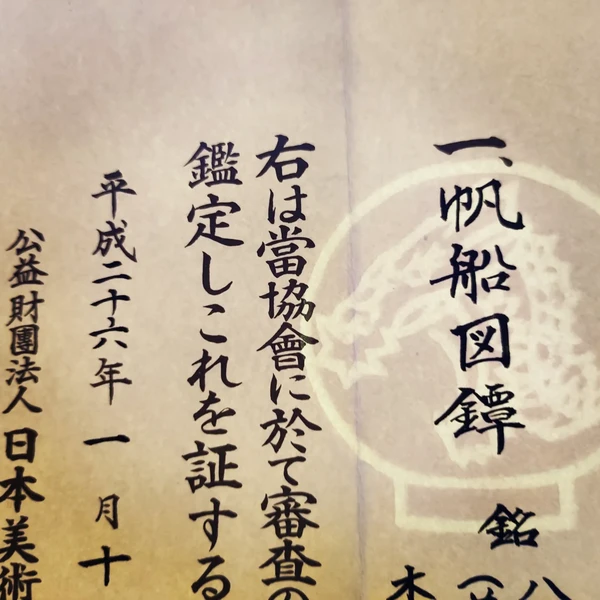 一、帆船図鐔 銘
右は當協會に於て審査の
鑑定しこれを証する
平成二十六年一月十
公益財團法人日本美術